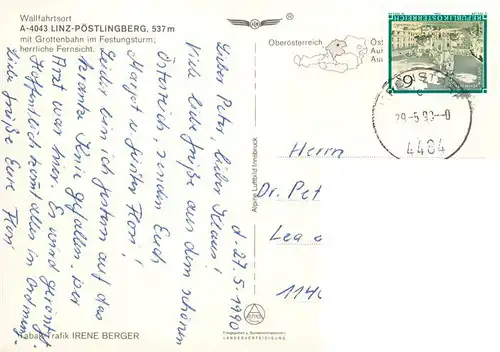 Wallfahrtsort
A-4043 LINZ-PÖSTLINGBERG, 537 m
mit Grottenbahn im Festungsturm;
herrliche Fernsicht.
d. 27.5.1990
Lieber Peter, lieber
Viele liebe Grüße aus dem schönen
Österreich, senden Euch
Margot u. Günter Flori!
Leider bin ich gestern auf das
kranke Knie gefallen. Der
Arzt war hier. Es wird geröntgt
Hoffentlich kommt alles in Ordnung.
Liebe Grüße Eure Flori
Tabak Trafik IRENE BERGER
Alpine Luftbild Innsbruck
Freigegeben v. Bundesministerium f.
LANDESVERTEIDIGUNG
Oberösterreich
Öst
Aus
REPUBLIK ÖSTERREICH
6
29-5.90-0
4484
Herrn
Dr. Pet
Lea
1140